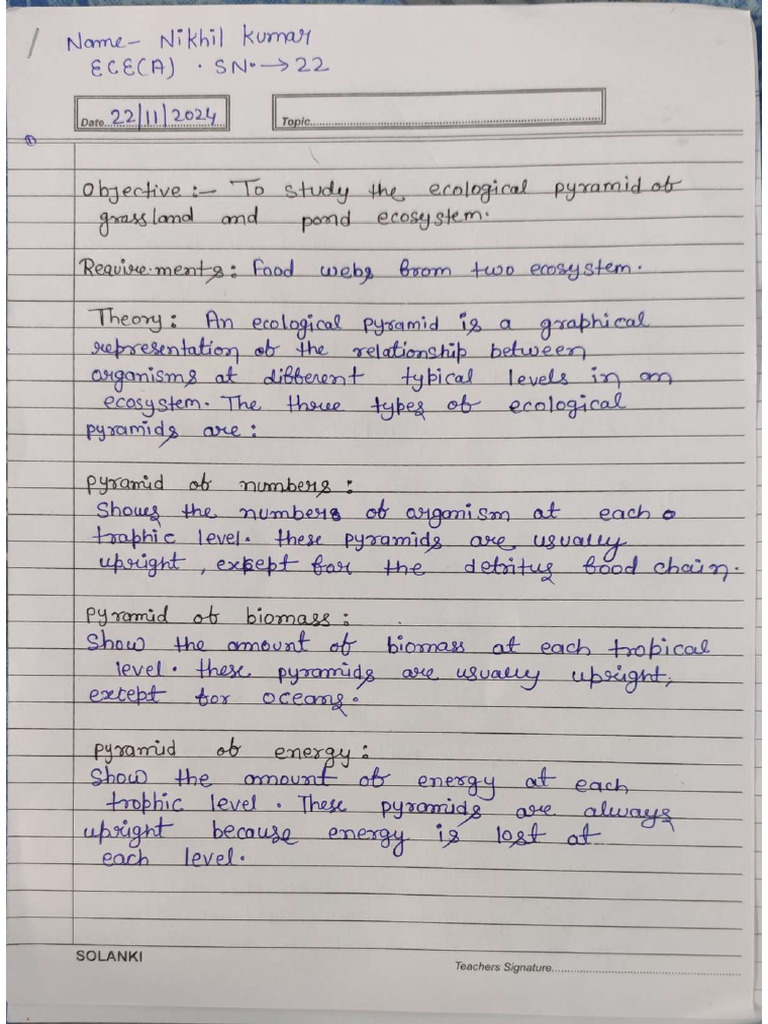 Name- Nikhil Kumar
ECE(A) . SN. → 22
Date 22/11/2024
Topic
①
Objective :- To study the ecological pyramid of
grassland and pond ecosystem.
Requirements: Food webs from two ecosystem.
Theory: An ecological pyramid is a graphical
representation of the relationship between
organisms at different typical levels in an
ecosystem. The three types of ecological
pyramids are:
pyramid of numbers:
Shows the numbers of organism at each
traphic level. these pyramids are usually
upright, exsept for the detritus food chain.
pyramid of biomass:
Show the amount of biomass at each tropical
level. these pyramids are usually upright,
extept for oceans.
pyramid of energy:
Show the amount of energy at each
trophic level. These pyramids are always
upright because energy is lost at
each level.
SOLANKI
Teachers Signature